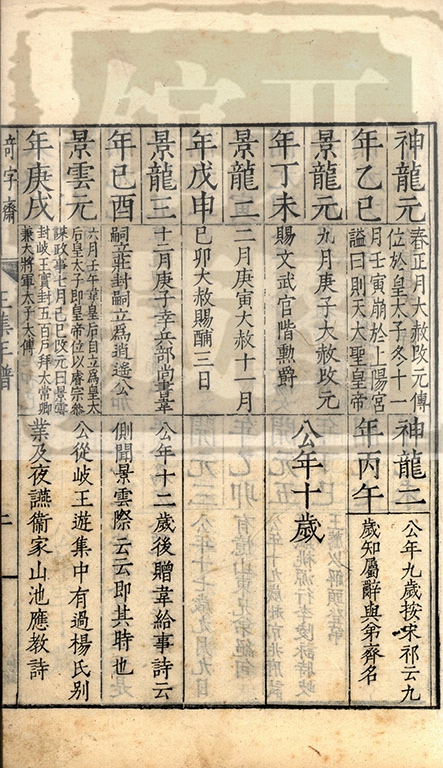 神龍元
年乙巳
春正月大赦改元傳
位於皇太子冬十一
月壬寅崩於上陽宮
謚曰則天大聖皇帝
神龍二
年丙午
公年九歲按宋祁云九
歲知屬辭與弟齊名
景龍元
年丁未
九月庚子大赦改元
賜文武官階勲爵
公年十歲
景龍二
年戊申
二月庚寅大赦十一月
己卯大赦賜酺三日
景龍三
年己酉
十二月庚子幸兵部尚書韋
嗣立莊封嗣立為逍遥公
公年十二歲後贈韋給事詩云
側聞景雲際云云即其時也
景雲元
年庚戌
六月壬午韋皇后自立為皇太
后皇太子即皇帝位以睿宗參
謀政事七月己巳改元曰景雲
封岐王實封五百戶拜太常卿
兼大將軍太子太傅
公從岐王遊集中有過楊氏別
業及夜讌衞家山池應教詩
奇字齋
王集年譜
二